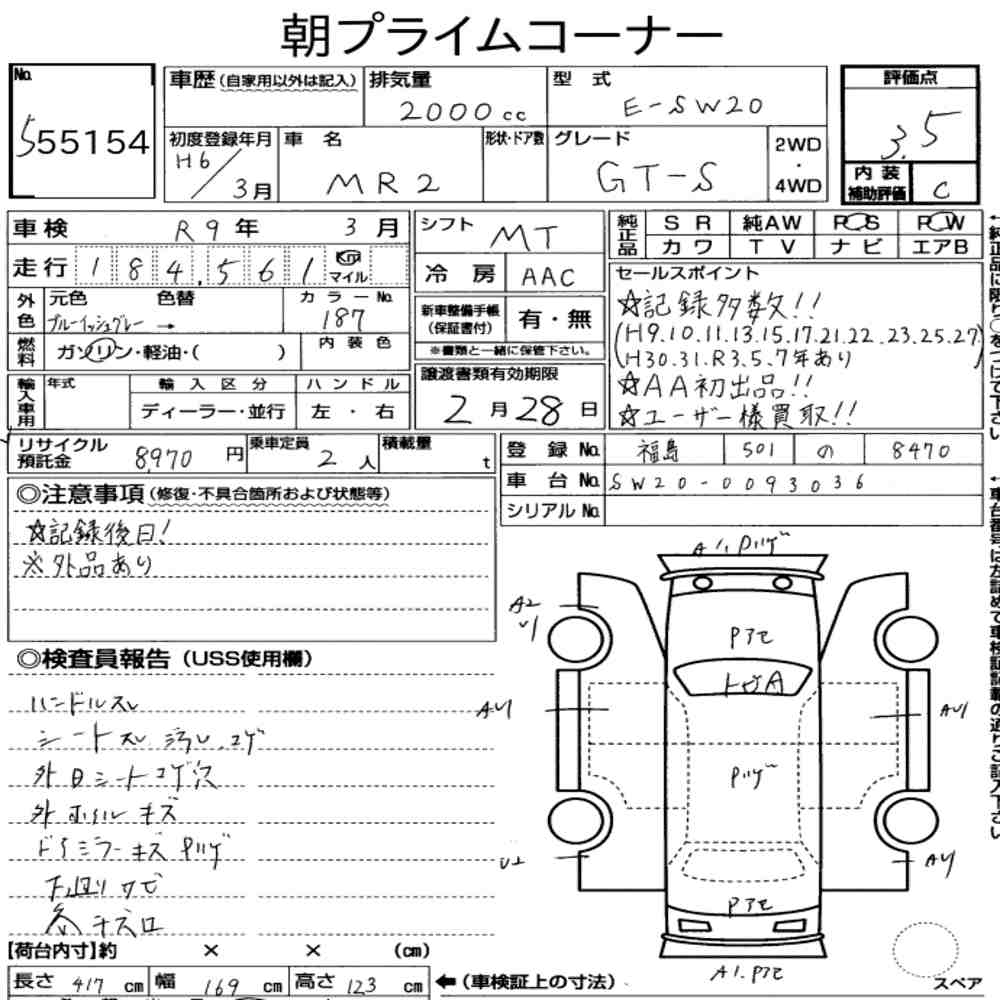 朝プライムコーナー
No. 555154
車歴(自家用以外は記入)
排気量 2000cc
型式 E-SW20
評価点 3.5
初度登録年月 H6/3月
車名 MR2
形状・ドア数
グレード GT-S
2WD・4WD
内装補助評価 C
車検 R9年 3月
シフト MT
純正品 SR 純AW PS PW
カワ TV ナビ エアB
走行 184,561 km マイル
冷房 AAC
セールスポイント
☆記録多数!!
(H9.10.11.13.15.17.21.22.23.25.27
H30.31.R3.5.7年あり)
☆AA初出品!!
☆ユーザー様買取!!
外色 元色 ブルーイッシュグレー → 色替
カラーNo. 187
新車整備手帳(保証書付) 有・無
※書類と一緒に保管下さい。
燃料 ガソリン・軽油・( )
内装色
譲渡書類有効期限 2月28日
輸入車用 年式 輸入区分 ハンドル
ディーラー・並行 左・右
リサイクル預託金 8,970円
乗車定員 2人
積載量 t
登録No. 福島 501 の 8470
車台No. SW20-0093036
シリアルNo.
◎注意事項(修復・不具合箇所および状態等)
☆記録後日!
※外品あり
◎検査員報告(USS使用欄)
ハンドルスレ
シートスレ.汚れ.コゲ
外品シートコゲ穴
外ホイルキズ
ドアミラーキズ Pハゲ
下廻りサビ
各キズ凹
A1.Pハゲ
A2
Pアセ
トビA
AU1
AU1
Pハゲ
U2
AU1
Pアセ
A1.Pアセ
スペア
【荷台内寸】約 × × (cm)
長さ 417cm 幅 169cm 高さ 123cm
←(車検証上の寸法)